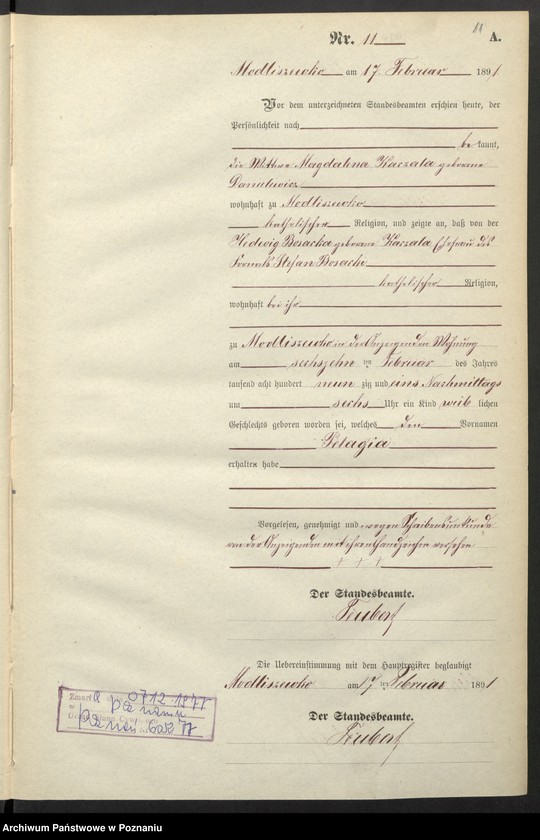 11
Nr. 11 A.
Modliszewko am 17. Februar 1891
Vor dem unterzeichneten Standesbeamten erschien heute, der
Persönlichkeit nach
be kannt,
die Wittwe Magdalena Kaczala geborene
Danilewicz
wohnhaft zu Modliszewko
katholischer Religion, und zeigte an, daß von der
Hedwig Bosacka geborene Kaczala Ehefrau des
Stefan Bosacki
katholischer Religion,
wohnhaft bei ihr
zu Modliszewko in der Anzeigenden Wohnung
am sechszehn ten Februar des Jahres
tausend acht hundert neun zig und eins Nachmittags
um sechs Uhr ein Kind weib lichen
Geschlechts geboren worden sei, welches den Vornamen
Pelagia
erhalten habe
Vorgelesen, genehmigt und wegen Schreibensunkunde
von der Anzeigenden mit ihrem Handzeichen versehen
+ + +
Der Standesbeamte.
Die Uebereinstimmung mit dem Hauptregister beglaubigt
Modliszewko am 17 ten Februar 1891
Der Standesbeamte.
Zmarł a 07.12.1977
w Poznaniu
Poznań 77
Archiwum Państwowe w Poznaniu